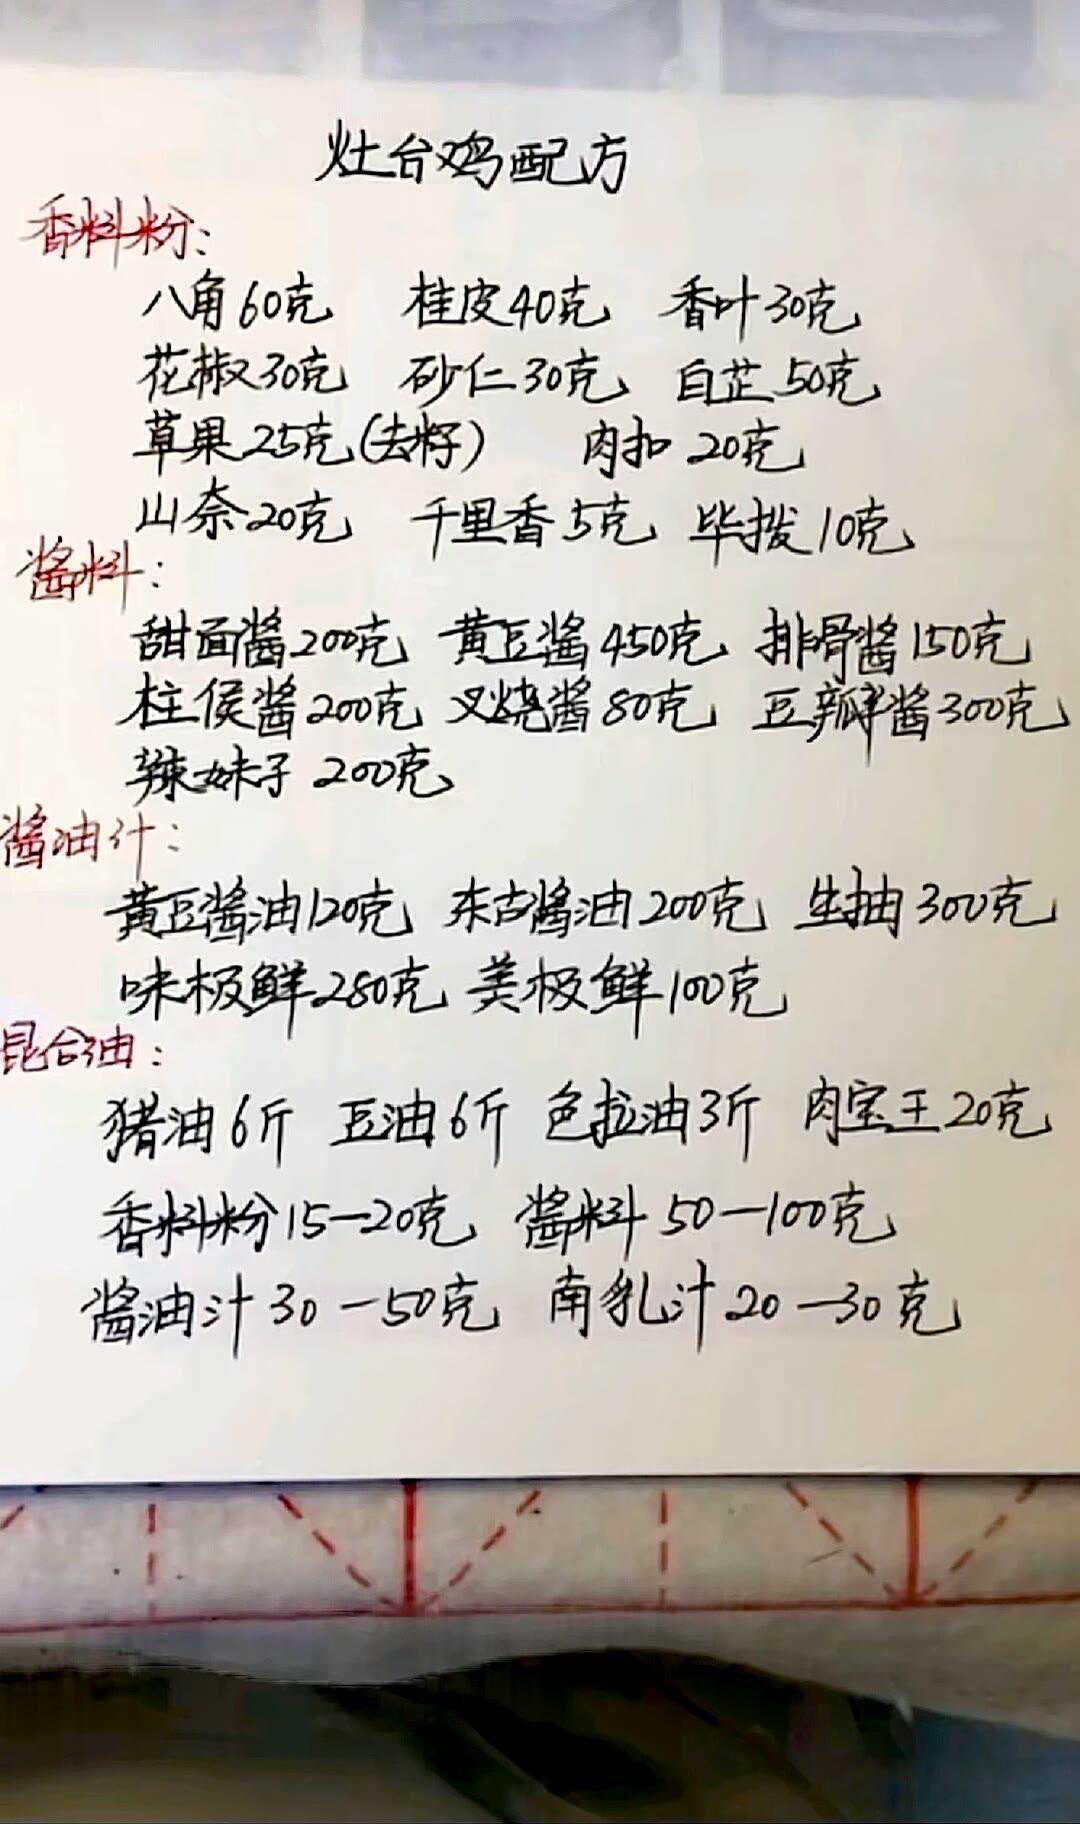 灶台鸡配方
香料粉:
八角60克 桂皮40克 香叶30克
花椒30克 砂仁30克 白芷50克
草果25克(去籽) 肉扣 20克
山奈20克 千里香5克 毕拨10克
酱料:
甜面酱200克 黄豆酱450克 排骨酱150克
柱侯酱200克 叉烧酱80克 豆瓣酱300克
辣妹子 200克
酱油汁:
黄豆酱油120克 东古酱油200克 生抽300克
味极鲜280克 美极鲜100克
昆合油:
猪油6斤 豆油6斤 色拉油3斤 肉宝王20克
香料粉15—20克 酱料50—100克
酱油汁30—50克 南乳汁20—30克